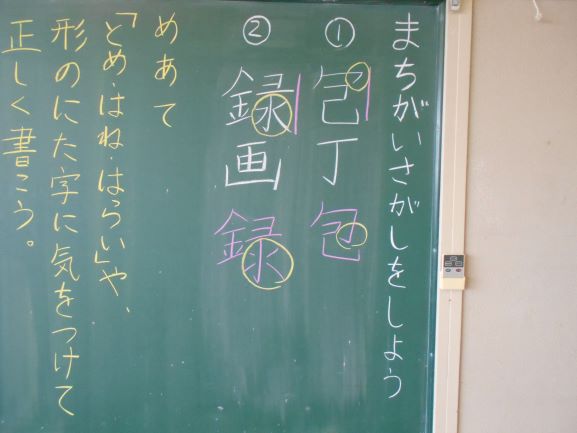 まちがいさがしをしよう
①
包丁包
②
録画録
めあて
「とめ・はね・はらい」や、
形のにた字に気をつけて
正しく書こう。